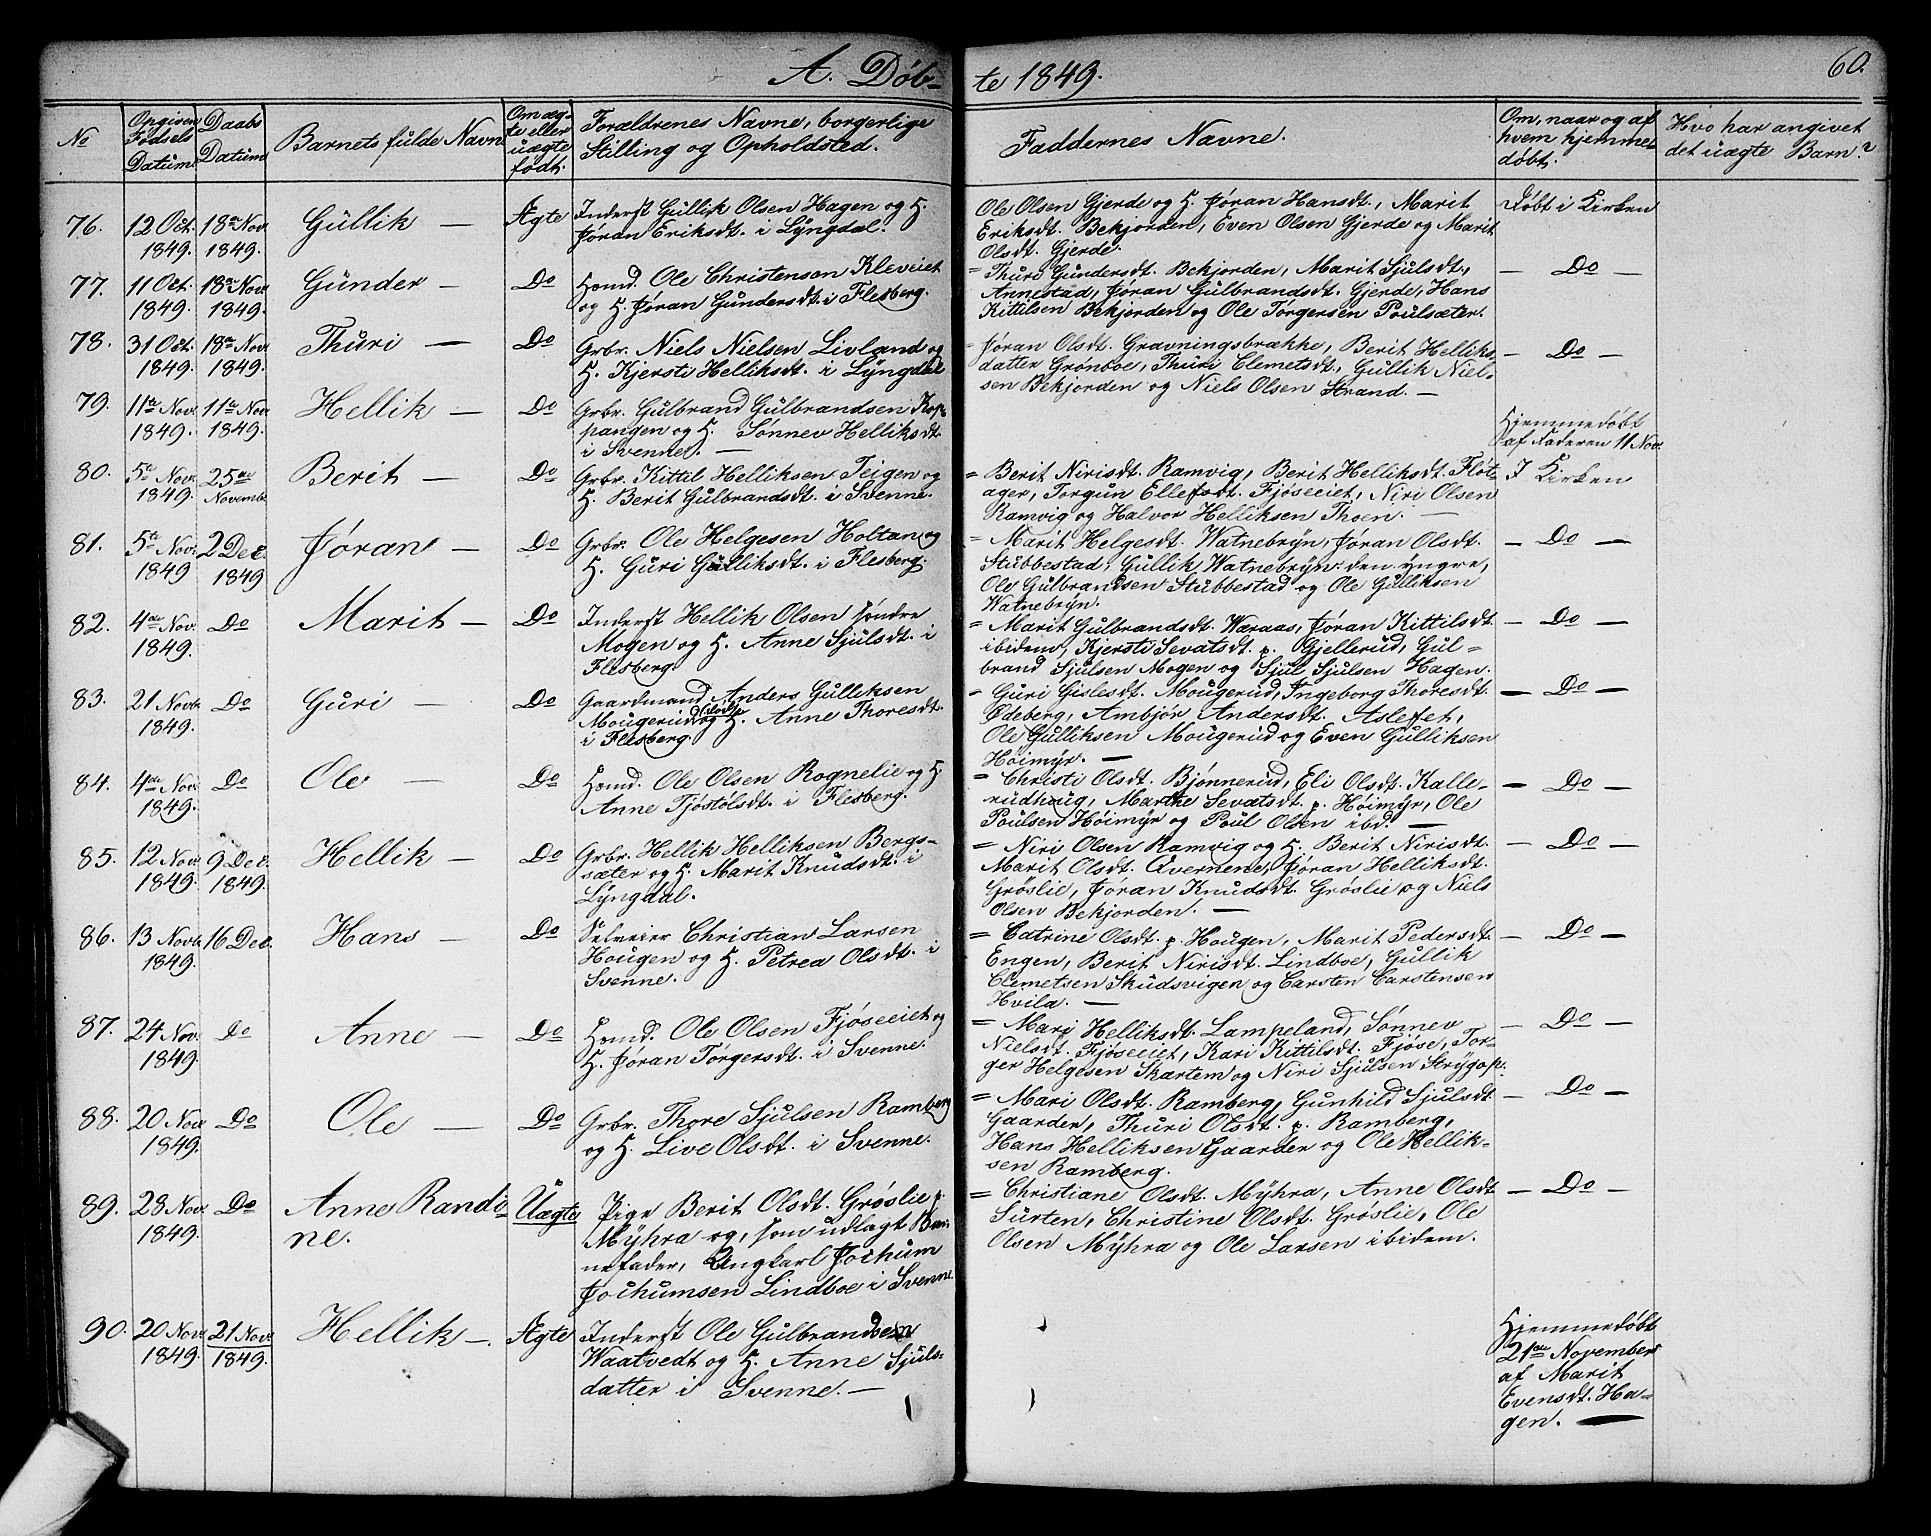 A. Døb-
te 1849.
60.
No
Opgiven Fødsels Datum.
Daabs Datum
Barnets fulde Navn
Om æg-te eller uægte født.
Forældrenes Navne, borgerlige Stilling og Opholdsted.
Faddernes Navne.
Om, naar og af hvem hjemme-døbt.
Hvo har angivet det uægte Barn?
76. 12 Oct. 18de Nov. Gullik — Ægte Inderst Gullik Olsen Hagen og H.
1849. 1849. Jøran Eriksdt. i Lyngdal.
Ole Olsen Gjerde og H. Jøran Hansdt., Marit Døbt i Kirken
Eriksdt. Bekjorden, Even Olsen Gjerde og Marit
Olsdt. Gjerde.
77. 11 Oct. 18de Nov. Gunder — Do Huusmd. Ole Christensen Kleveiet
1849. 1849. og H. Jøran Gundersdt. i Flesberg.
= Thuri Gundersdt. Bekjorden, Marit Sjulsdt., — Do —
Annestad, Jøran Gulbrandsdt. Gjerde, Hans
Kittilsen Bekjorden og Ole Torgersen Poulsæter.
78. 31 Oct. 18de Nov. Thuri — Do Grbr. Niels Nielsen Livland og
1849. 1849. H. Kjersti Helliksdt. i Lyngdal
= Jøran Olsdt. Gravningsbrække, Berit Helliks- — Do —
datter Grønboe, Thuri Clemetsdt., Gullik Niel-
sen Bekjorden og Niels Olsen Strand. —
79. 11te Nov. 11te Nov. Hellik — Do Grbr. Gulbrand Gulbrandsen Kop-
1849. 1849. pangen og H. Sønnev Helliksdt.
i Svenne. —
Hjemmedøbt
af Faderen 11 Nov.
80. 5te Nov. 25de Berit — Do Grbr. Kittil Helliksen Teigen og
1849. Novembr. H. Berit Gulbrandsdt. i Svenne.
= Berit Nirisdt. Ramvig, Berit Helliksdt. Fløt- I Kirken
ager, Torgun Ellefsdt. Fjøseeiet, Niri Olsen
Ramvig og Halvor Helliksen Thoen. —
81. 5te Nov. 2 Dec. Jøran — Do Grbr. Ole Helgesen Holtan og
1849 1849 H. Guri Gulliksdt. i Flesberg.
= Marit Helgesdt. Watnebryn, Jøran Olsdt. — Do —
Stubbestad, Gullik Watnebryn den yngre,
Ole Gulbrandsen Stubbestad og Ole Gulliksen
Watnebryn.
82. 4de Nov. Do Marit — Do Inderst Hellik Olsen søndre
1849. Mogen og H. Anne Sjulsdt. i
Flesberg.
= Marit Gulbrandsdt. Waraas, Jøran Kittilsdt. — Do —
ibidem, Kjersti Sevatsdt. p. Gjellerud, Gul=
brand Sjulsen Mogen og Sjul Sjulsen Hagen.
83. 21 Novbr. Do Guri — Do Gaardmand Anders Gulliksen
1849. Mougerud og H. Anne Thoresdt.
i Flesberg.
= Guri Gislesdt. Mougerud, Ingeborg Thoresdt. — Do —
Ødeberg, Ambjør Andersdt. Aslefet,
Ole Gulliksen Mougerud og Even Gulliksen
Høimyr. —
84. 4de Nov. Do Ole — Do Huusmd. Ole Olsen Rognelie og H.
1849. Anne Tjøstølsdt. i Flesberg.
= Christi Olsdt. Bjønnerud, Eli Olsdt. Kalle- — Do —
rudhaug, Marthe Sevatsdt. p. Høimyr, Ole
Poulsen Høimyr og Poul Olsen ibd. —
85. 12 Nov. 9 Dec. Hellik — Do Grbr. Hellik Helliksen Bergs-
1849. 1849. sæter og H. Marit Knudsdt. i
Lyngdal.
= Niri Olsen Ramvig og H. Berit Nirisdt. — Do —
Marit Olsdt. Qvernene, Jøran Helliksdt.
Grøslie, Jøran Knudsdt. Grøslie og Niels
Olsen Bekjorden. —
86. 13 Novbr. 16 Dec. Hans — Do Selveier Christian Larsen
1849. Hougen og H. Petrea Olsdt. i
Svenne.
= Catrine Olsdt. p. Hougen, Marit Pedersdt. — Do —
Engen, Berit Nirisdt. Lindboe, Gullik
Clemetsen Skudsvigen og Carsten Carstensen
Hvila. —
87. 24 Nov. Do Anne — Do Huusmd. Ole Olsen Fjøseeiet og
1849. H. Jøran Torgersdt. i Svenne.
= Mari Helliksdt. Lampeland, Sønnev — Do —
Nielsdt. Fjøseeiet, Kari Kittilsdt. Fjøse, Tor-
ger Helgesen Skartem og Niri Sjulsen
88. 20 Nov. Do Ole — Do Grbr. Thore Sjulsen Ramberg
1849. og H. Live Olsdt. i Svenne.
= Mari Olsdt. Ramberg, Gunhild Sjulsdt. — Do —
Gaarden, Thuri Olsdt. p. Ramberg,
Hans Helliksen Gaarden og Ole Hellik-
sen Ramberg.
89. 28 Nov. Do Anne Randi- Uægte Pige Berit Olsdt. Grøslie p.
1849. ne. Myhra og, som udlagt Bar-
nefader, Ungkarl Jochum
Jochumsen Lindboe i Svenne.
= Christiane Olsdt. Myhra, Anne Olsdt. — Do —
Surten, Christine Olsdt. Grøslie, Ole
Olsen Myhra og Ole Larsen ibidem.
90. 20 Nov. 21 Nov. Hellik — Ægte Inderst Ole Gulbrandsen
1849. 1849. Waatvedt og H. Anne Sjuls-
datter i Svenne. —
Hjemmedøbt
21de November
af Marit
Evensdt. Ha-
gen. —